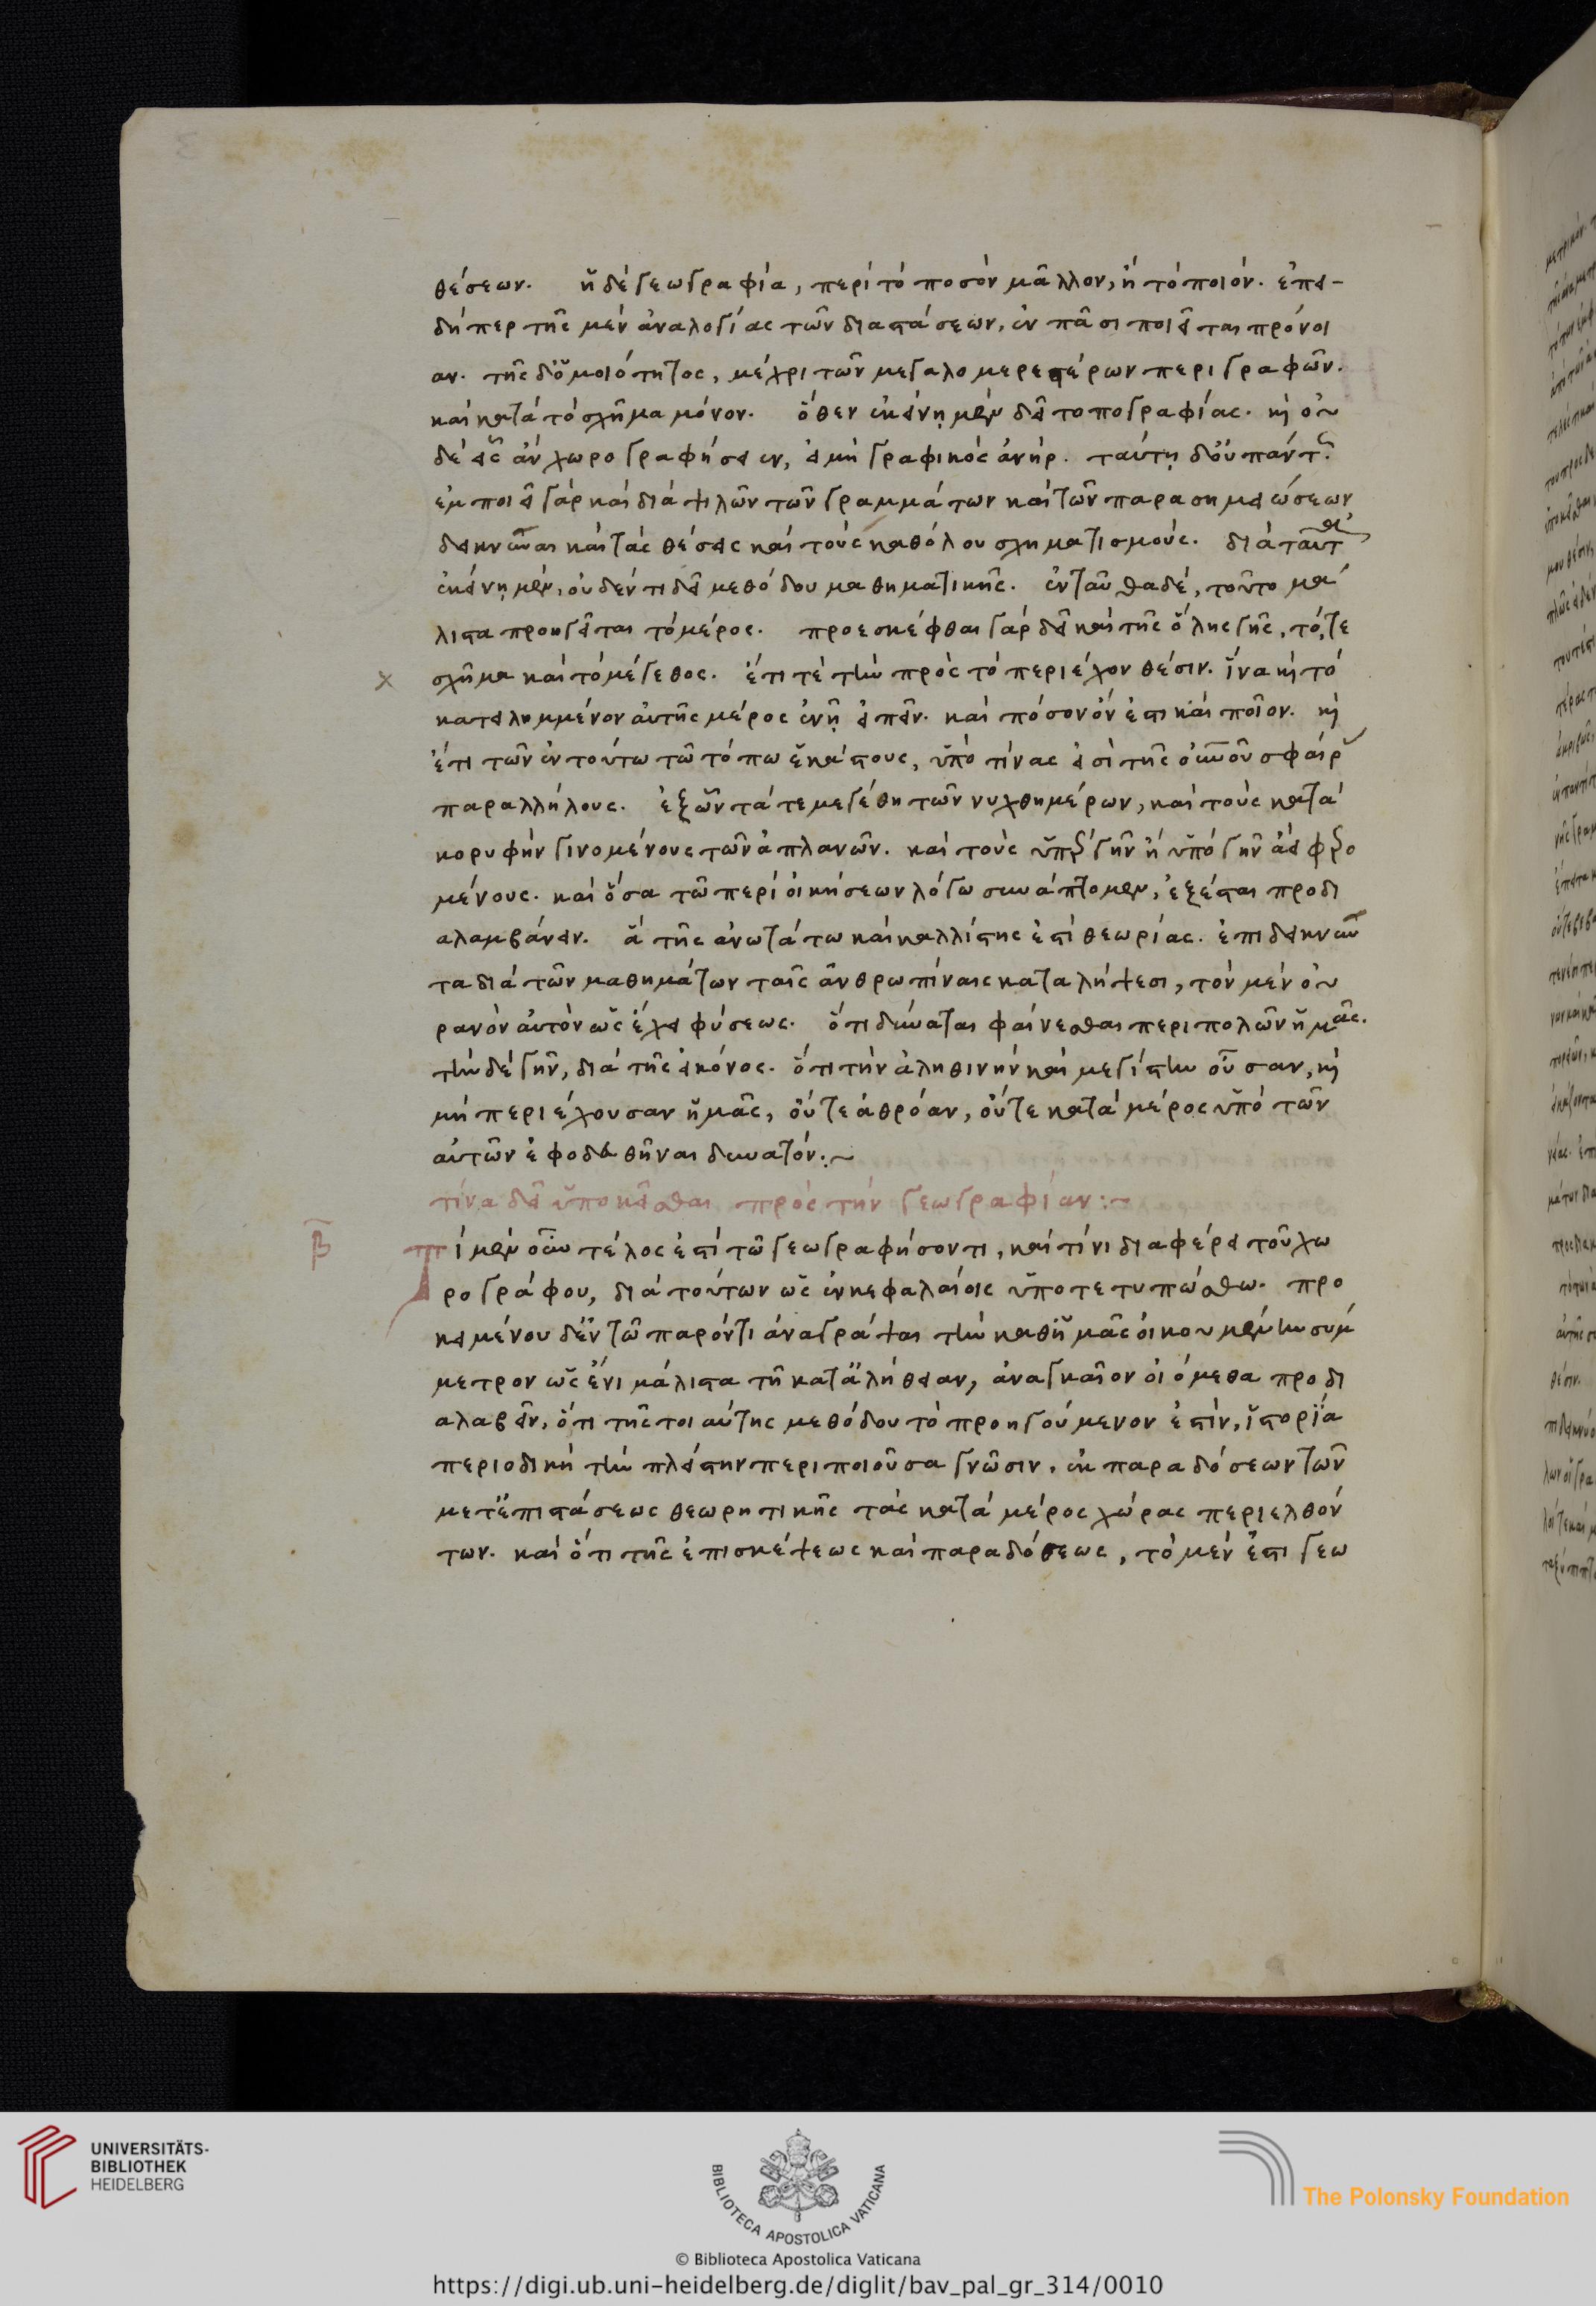 θέσεων. ἡ δὲ γεωγραφία, περὶ τὸ ποσὸν μᾶλλον, ἢ τὸ ποιόν. ἐπει-
δήπερ τῆς μὲν ἀναλογίας τῶν διαστάσεων, ἐν πᾶσι ποιεῖται πρόνοι
αν. τῆς δ' ὁμοιότητος, μέχρι τῶν μεγαλομερεστέρων περιγραφῶν.
καὶ κατὰ τὸ σχῆμα μόνον. ὅθεν ἐκείνῃ μὲν δεῖ τοπογραφίας. καὶ οὐ
δὲ εἷς ἂν χωρογραφήσειεν, εἰ μὴ γραφικὸς ἀνήρ. ταύτῃ δ' οὐ πάντως
ἐμποιεῖ γὰρ καὶ διὰ ψιλῶν τῶν γραμμάτων καὶ τῶν παρασημειώσεων
δεικνύναι καὶ τὰς θέσεις καὶ τοὺς καθόλου σχηματισμούς. διὰ ταῦτα
ἐκείνῃ μὲν, οὐδέν τι δεῖ μεθόδου μαθηματικῆς. ἐνταῦθα δὲ, τοῦτο μά
λιστα προηγεῖται τὸ μέρος. προεσκέφθαι γὰρ δεῖ καὶ τῆς ὅλης γῆς, τό,τε
σχῆμα καὶ τὸ μέγεθος. ἔτι τὲ τὴν πρὸς τὸ περιέχον θέσιν. ἵνα καὶ τὸ
κατειλημμένον αὐτῆς μέρος ἐνῇ εἰπεῖν. καὶ πόσον ὄν ἐστι καὶ ποῖον. καὶ
ἔτι τῶν ἐν τούτω τῶ τόπω ἑκάστους, ὑπὸ τίνας εἰσὶ τῆς οὐρανοῦ σφαίρας
παραλλήλους. ἐξ ὧν τά τε μεγέθη τῶν νυχθημέρων, καὶ τοὺς κατὰ
κορυφὴν γινομένους τῶν ἀπλανῶν. καὶ τοὺς ὑπὲρ γῆν ἢ ὑπὸ γῆν ἀεὶ φερο
μένους. καὶ ὅσα τῶ περὶ οἰκήσεων λόγω συνάπτομεν, ἐξέσται προδι
αλαμβάνειν. ἃ τῆς ἀνωτάτω καὶ καλλίστης ἐστὶ θεωρίας. ἐπιδεικνύν
τα διὰ τῶν μαθημάτων ταῖς ἀνθρωπίναις καταλήψεσι, τὸν μὲν οὐ
ρανὸν αὐτὸν ὡς ἔχει φύσεως. ὅτι δύναται φαίνεσθαι περιπολῶν ἡμᾶς.
τὴν δὲ γῆν, διὰ τῆς εἰκόνος. ὅτι τὴν ἀληθινὴν καὶ μεγίστην οὖσαν, καὶ
μὴ περιέχουσαν ἡμᾶς, οὔτε ἀθρόαν, οὔτε κατὰ μέρος ὑπὸ τῶν
αὐτῶν ἐφοδευθῆναι δυνατόν:~
τίνα δεῖ ὑποκεῖσθαι πρὸς τὴν γεωγραφίαν:~
Β Τί μὲν οὖν τέλος ἐστὶ τῶ γεωγραφήσοντι, καὶ τίνι διαφέρει τοῦ χω
ρογράφου, διὰ τούτων ὡς ἐν κεφαλαίοις ὑποτετυπώσθω. προ
κειμένου δ' ἐν τῶ παρόντι ἀναγράψαι τὴν καθ' ἡμᾶς οἰκουμένην σύμ
μετρον ὡς ἔνι μάλιστα τῆ κατ' ἀλήθειαν, ἀναγκαῖον οἰόμεθα προδι
αλαβεῖν, ὅτι τῆς τοιαύτης μεθόδου τὸ προηγούμενον ἐστὶν, ἱστορία
περιοδικὴ τὴν πλείστην περιποιοῦσα γνῶσιν. ἐκ παραδόσεων τῶν
μετ' ἐπιστάσεως θεωρητικῆς τὰς κατὰ μέρος χώρας περιελθόν
των. καὶ ὅτι τῆς ἐπισκέψεως καὶ παραδόσεως, τὸ μέν ἐστι γεω
UNIVERSITÄTS-
BIBLIOTHEK
HEIDELBERG
BIBLIOTECA APOSTOLICA VATICANA
The Polonsky Foundation
© Biblioteca Apostolica Vaticana
https://digi.ub.uni-heidelberg.de/diglit/bav_pal_gr_314/0010